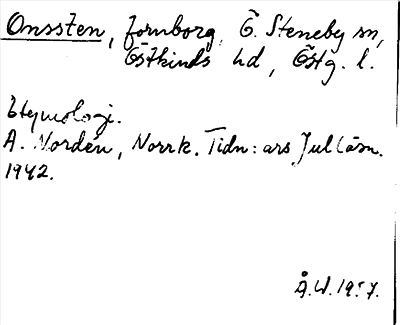 Onssten, fornborg, Ö. Steneby sn,
Östkinds hd, Östg. l.
Etymologi.
A. Nordén, Norrk. Tidn:ars Julläsn.
1942.
Å.W. 1957.